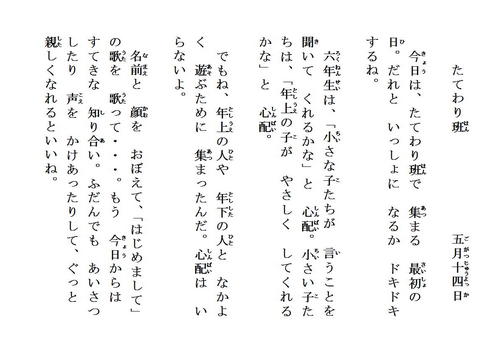 たてわり班　　　五月十四日
　今日は、たてわり班で　集まる　最初の
日。だれと　いっしょに　なるか　ドキドキ
するね。
　六年生は、「小さな子たちが　言うことを
聞いて　くれるかな」と　心配。小さい子た
ちは、「年上の子が　やさしく　してくれる
かな」と　心配。
　でもね、年上の人や　年下の人と　なかよ
く　遊ぶために　集まったんだ。心配は　い
らないよ。
　名前と　顔を　おぼえて、「はじめまして」
の歌を　歌って・・・。もう　今日からは
すてきな　知り合い。ふだんでも　あいさつ
したり　声を　かけあったりして、ぐっと
親しくなれるといいね。